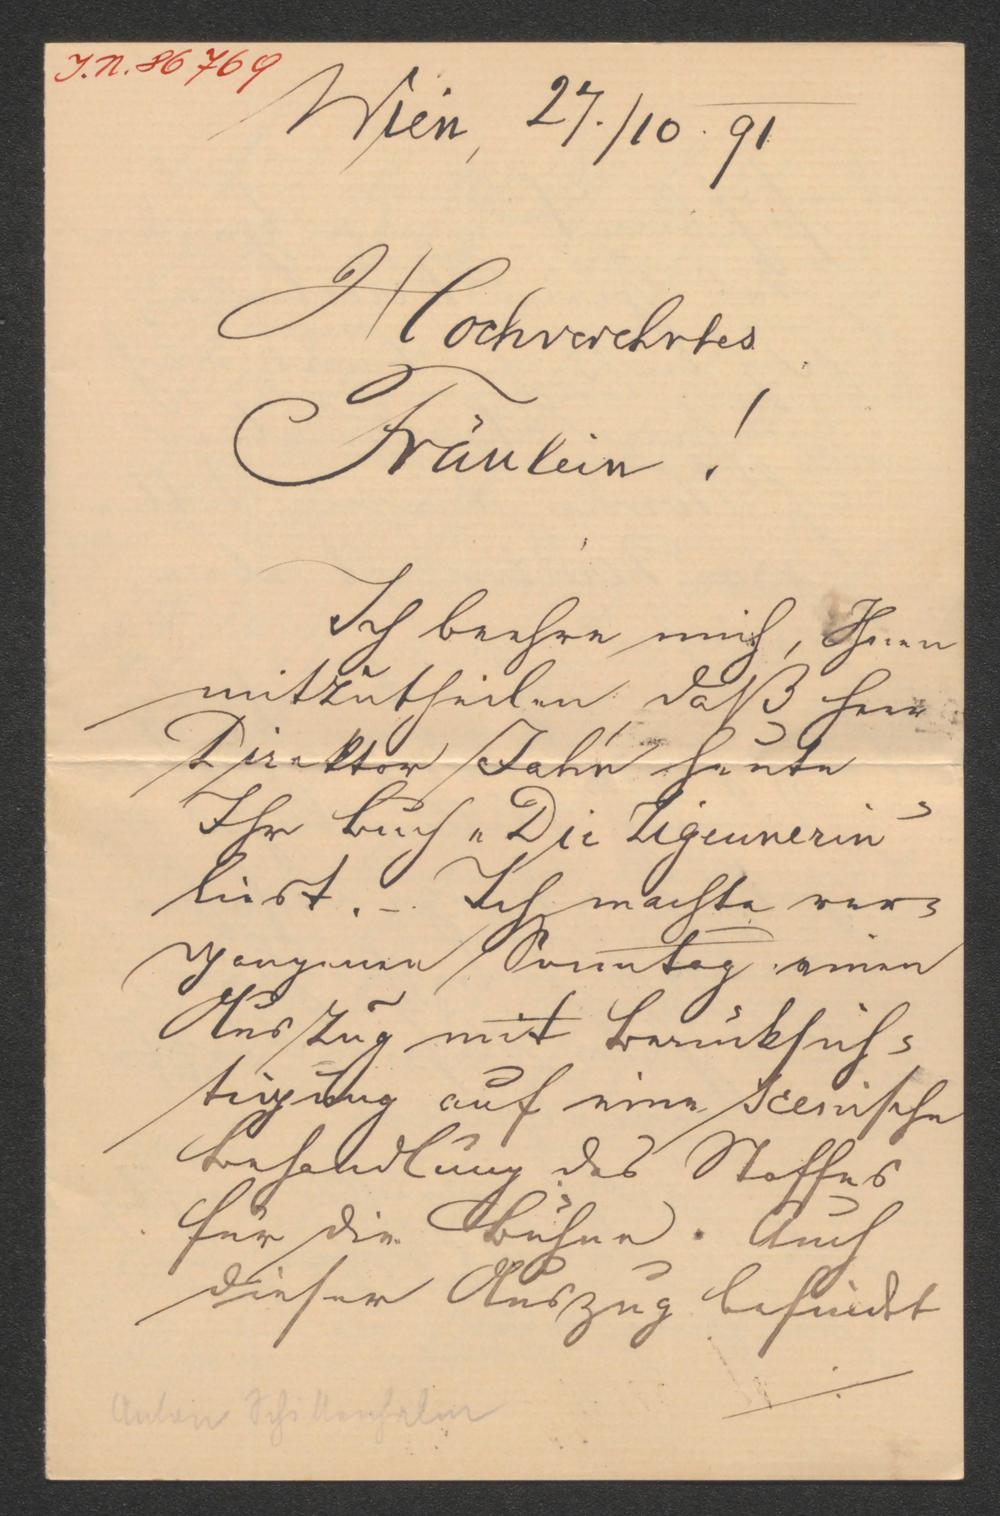 J.N. 86769
Wien, 27./10. 91
Hochverehrtes
Fräulein!
Ich beehre mich, Ihnen
mitzutheilen daß Herr
Direktor Jahn heute
Ihr Buch „Die Zigeunerin"
liest. – Ich machte ver=
gangenen Sonntag einen
Auszug mit Berücksich=
tigung auf eine scenische
Behandlung des Stoffes
für die Bühne. Auch
dieser Auszug befindet
./.
Anton